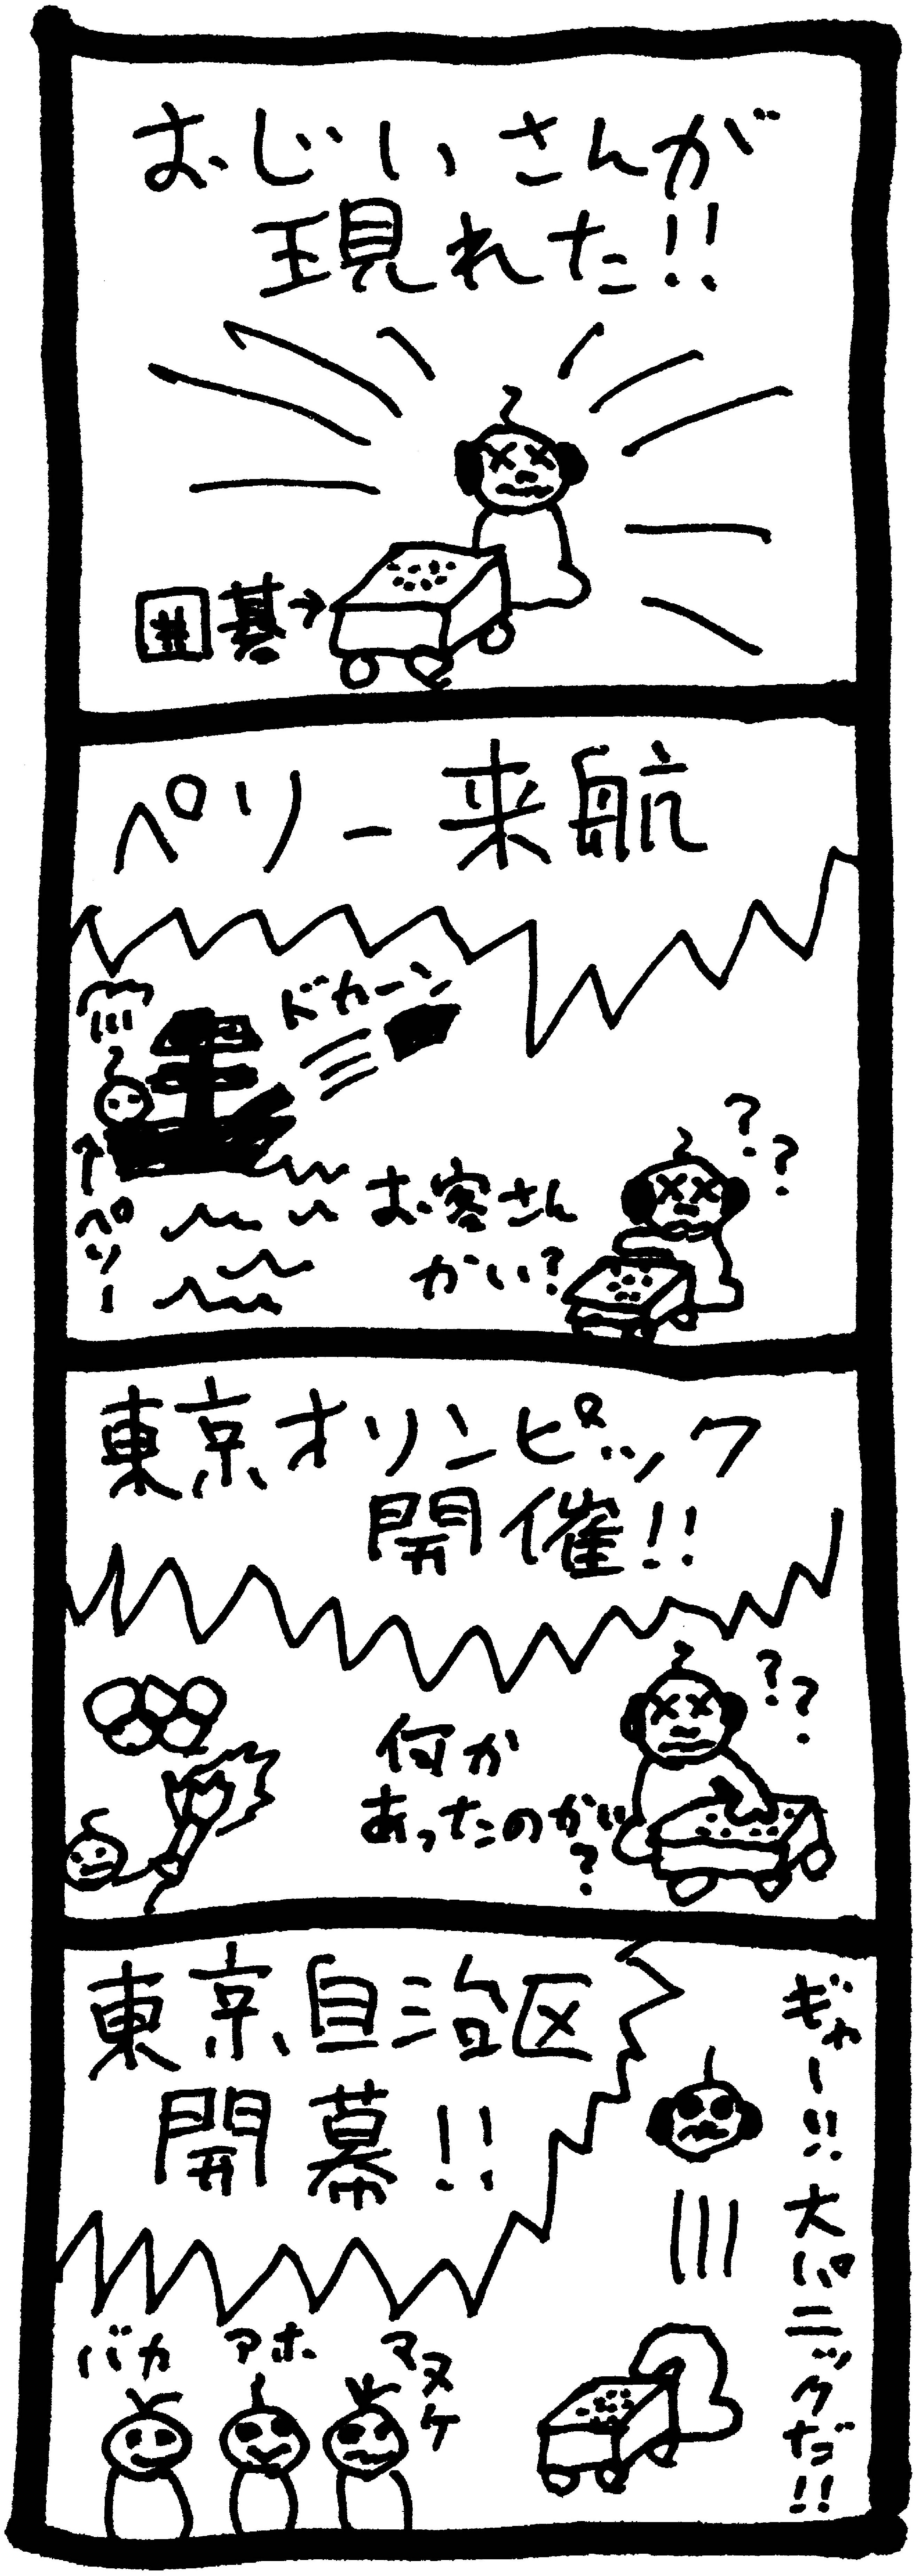 おじいさんが
現れた!!
囲碁→
ペリー来航
ドカーン
↑ペリー
??
お客さん
かい?
東京オリンピック
開催!!
??
何か
あったのかい
?
東京自治区
開幕!!
ギャー!!大パニックだ!!
バカ
アホ
マヌケ